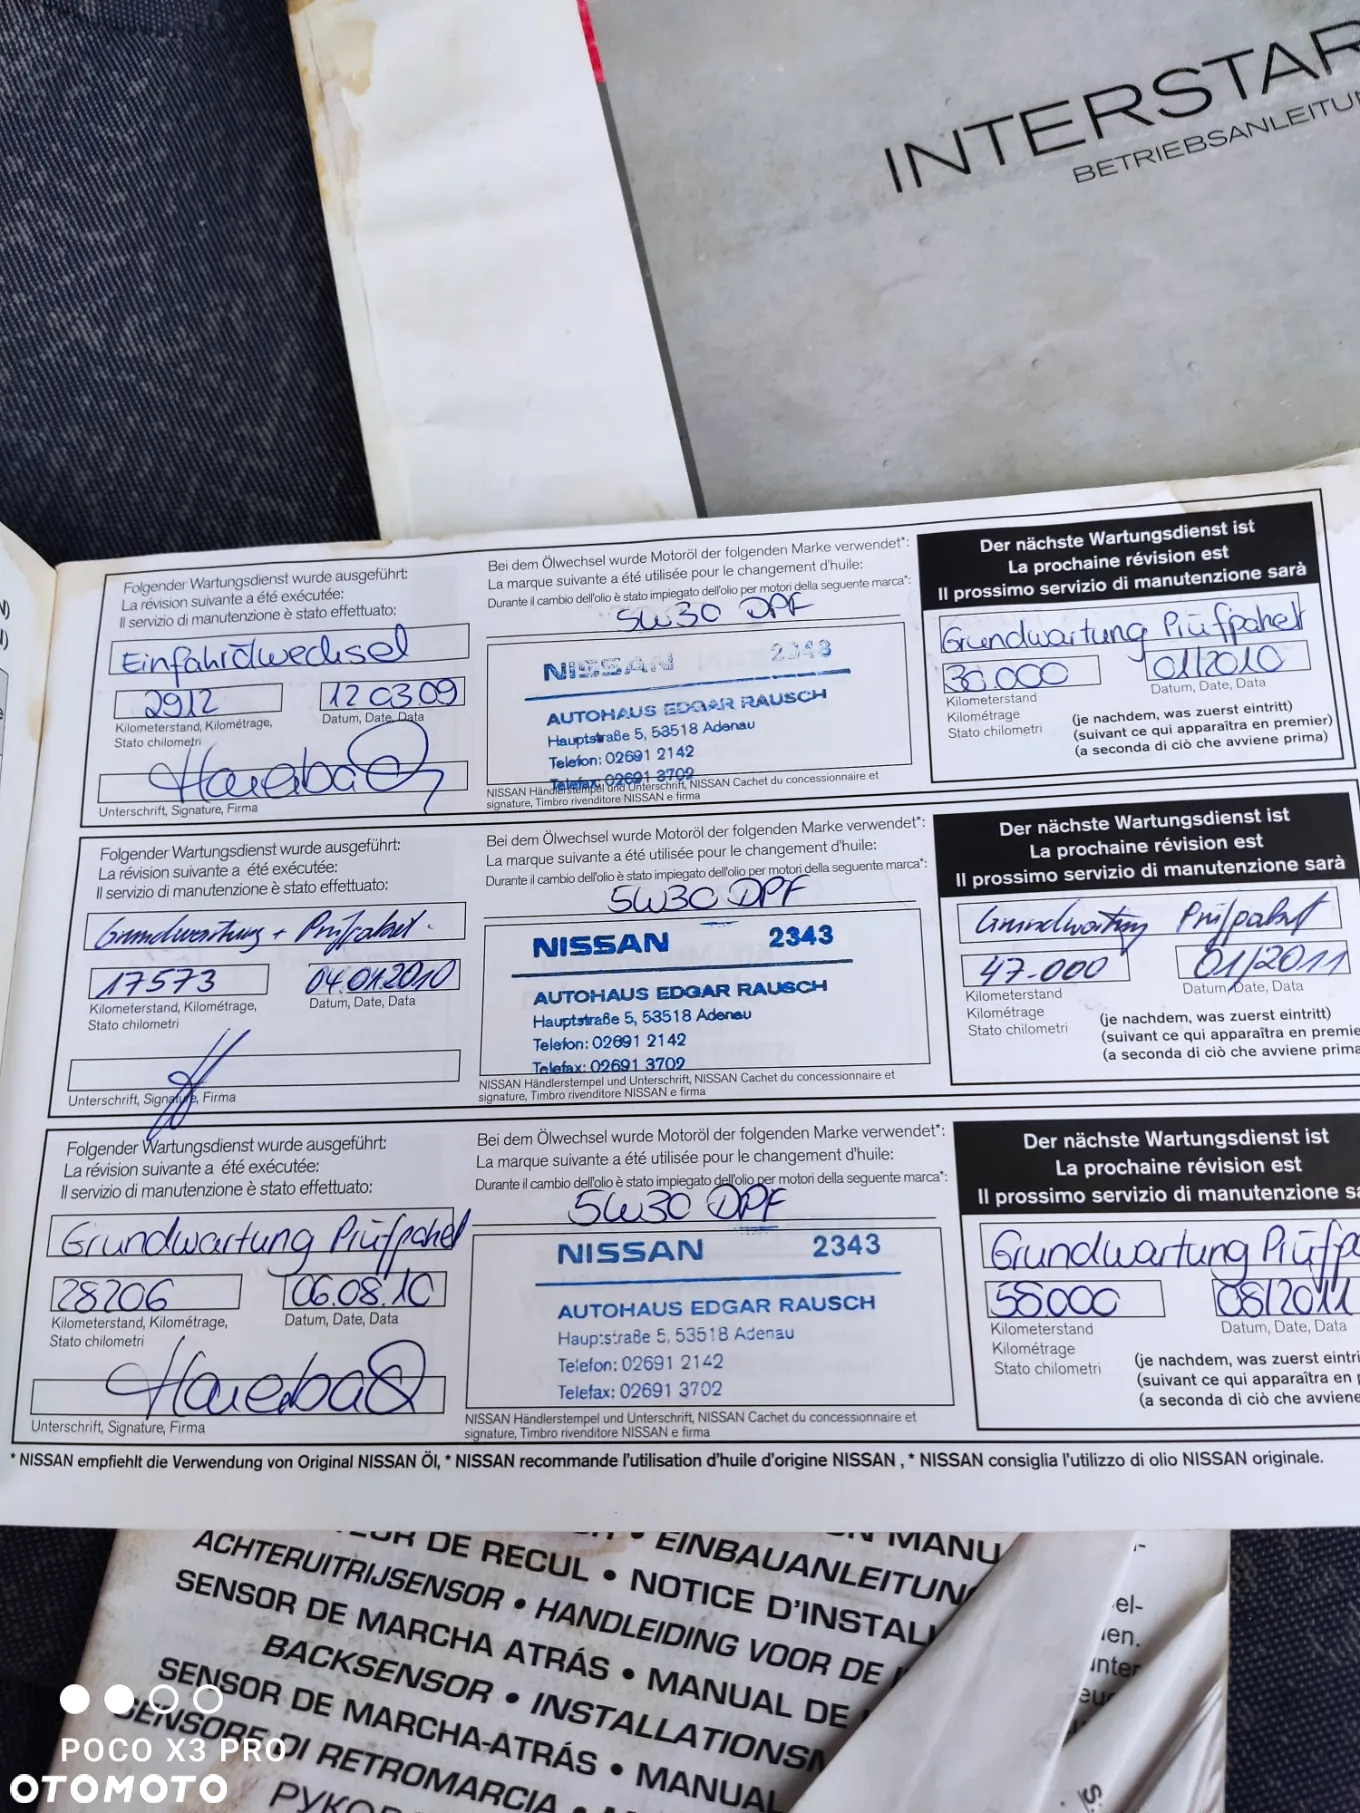 INTERSTAR
BETRIEBSANLEITUN
Folgender Wartungsdienst wurde ausgeführt:
La révision suivante a été exécutée:
Il servizio di manutenzione è stato effettuato:
Einfahrölwechsel
2912
12 03 09
Kilometerstand, Kilométrage,
Stato chilometri
Datum, Date, Data
Unterschrift, Signature, Firma
Bei dem Ölwechsel wurde Motoröl der folgenden Marke verwendet*:
La marque suivante a été utilisée pour le changement d'huile:
Durante il cambio dell'olio è stato impiegato dell'olio per motori della seguente marca*:
5W30 DPF
NISSAN 2343
AUTOHAUS EDGAR RAUSCH
Hauptstraße 5, 53518 Adenau
Telefon: 02691 2142
Telefax: 02691 3702
NISSAN Händlerstempel und Unterschrift, NISSAN Cachet du concessionnaire et
signature, Timbro rivenditore NISSAN e firma
Der nächste Wartungsdienst ist
La prochaine révision est
Il prossimo servizio di manutenzione sarà
Grundwartung Prüfpaket
30.000
01/2010
Kilometerstand
Kilométrage
Stato chilometri
Datum, Date, Data
(je nachdem, was zuerst eintritt)
(suivant ce qui apparaîtra en premier)
(a seconda di ciò che avviene prima)
Folgender Wartungsdienst wurde ausgeführt:
La révision suivante a été exécutée:
Il servizio di manutenzione è stato effettuato:
Grundwartung + Prüfpaket.
17573
04.01.2010
Kilometerstand, Kilométrage,
Stato chilometri
Datum, Date, Data
Unterschrift, Signature, Firma
Bei dem Ölwechsel wurde Motoröl der folgenden Marke verwendet*:
La marque suivante a été utilisée pour le changement d'huile:
Durante il cambio dell'olio è stato impiegato dell'olio per motori della seguente marca*:
5W30 DPF
NISSAN 2343
AUTOHAUS EDGAR RAUSCH
Hauptstraße 5, 53518 Adenau
Telefon: 02691 2142
Telefax: 02691 3702
NISSAN Händlerstempel und Unterschrift, NISSAN Cachet du concessionnaire et
signature, Timbro rivenditore NISSAN e firma
Der nächste Wartungsdienst ist
La prochaine révision est
Il prossimo servizio di manutenzione sarà
Grundwartung Prüfpaket
47.000
01/2011
Kilometerstand
Kilométrage
Stato chilometri
Datum, Date, Data
(je nachdem, was zuerst eintritt)
(suivant ce qui apparaîtra en premie
(a seconda di ciò che avviene prima
Folgender Wartungsdienst wurde ausgeführt:
La révision suivante a été exécutée:
Il servizio di manutenzione è stato effettuato:
Grundwartung Prüfpaket
28206
06.08.10
Kilometerstand, Kilométrage,
Stato chilometri
Datum, Date, Data
Unterschrift, Signature, Firma
Bei dem Ölwechsel wurde Motoröl der folgenden Marke verwendet*:
La marque suivante a été utilisée pour le changement d'huile:
Durante il cambio dell'olio è stato impiegato dell'olio per motori della seguente marca*:
5W30 DPF
NISSAN 2343
AUTOHAUS EDGAR RAUSCH
Hauptstraße 5, 53518 Adenau
Telefon: 02691 2142
Telefax: 02691 3702
NISSAN Händlerstempel und Unterschrift, NISSAN Cachet du concessionnaire et
signature, Timbro rivenditore NISSAN e firma
Der nächste Wartungsdienst ist
La prochaine révision est
Il prossimo servizio di manutenzione sa
Grundwartung Prüfp
58.000
08/2011
Kilometerstand
Kilométrage
Stato chilometri
Datum, Date, Data
(je nachdem, was zuerst eintri
(suivant ce qui apparaîtra en p
(a seconda di ciò che avviene
* NISSAN empfiehlt die Verwendung von Original NISSAN Öl, * NISSAN recommande l'utilisation d'huile d'origine NISSAN , * NISSAN consiglia l'utilizzo di olio NISSAN originale.
DE RECUL • NOTICE D'INSTAL
EINBAUANLEITUNG
ACHTERUITRIJSENSOR • HANDLEIDING VOOR DE
SENSOR DE MARCHA ATRÁS • MANUAL DE
BACKSENSOR • INSTALLATIONSM
SENSOR DE MARCHA-ATRÁS • MANUAL
SENSORE DI RETROMARCIA •
РУКО
POCO X3 PRO
OTOMOTO